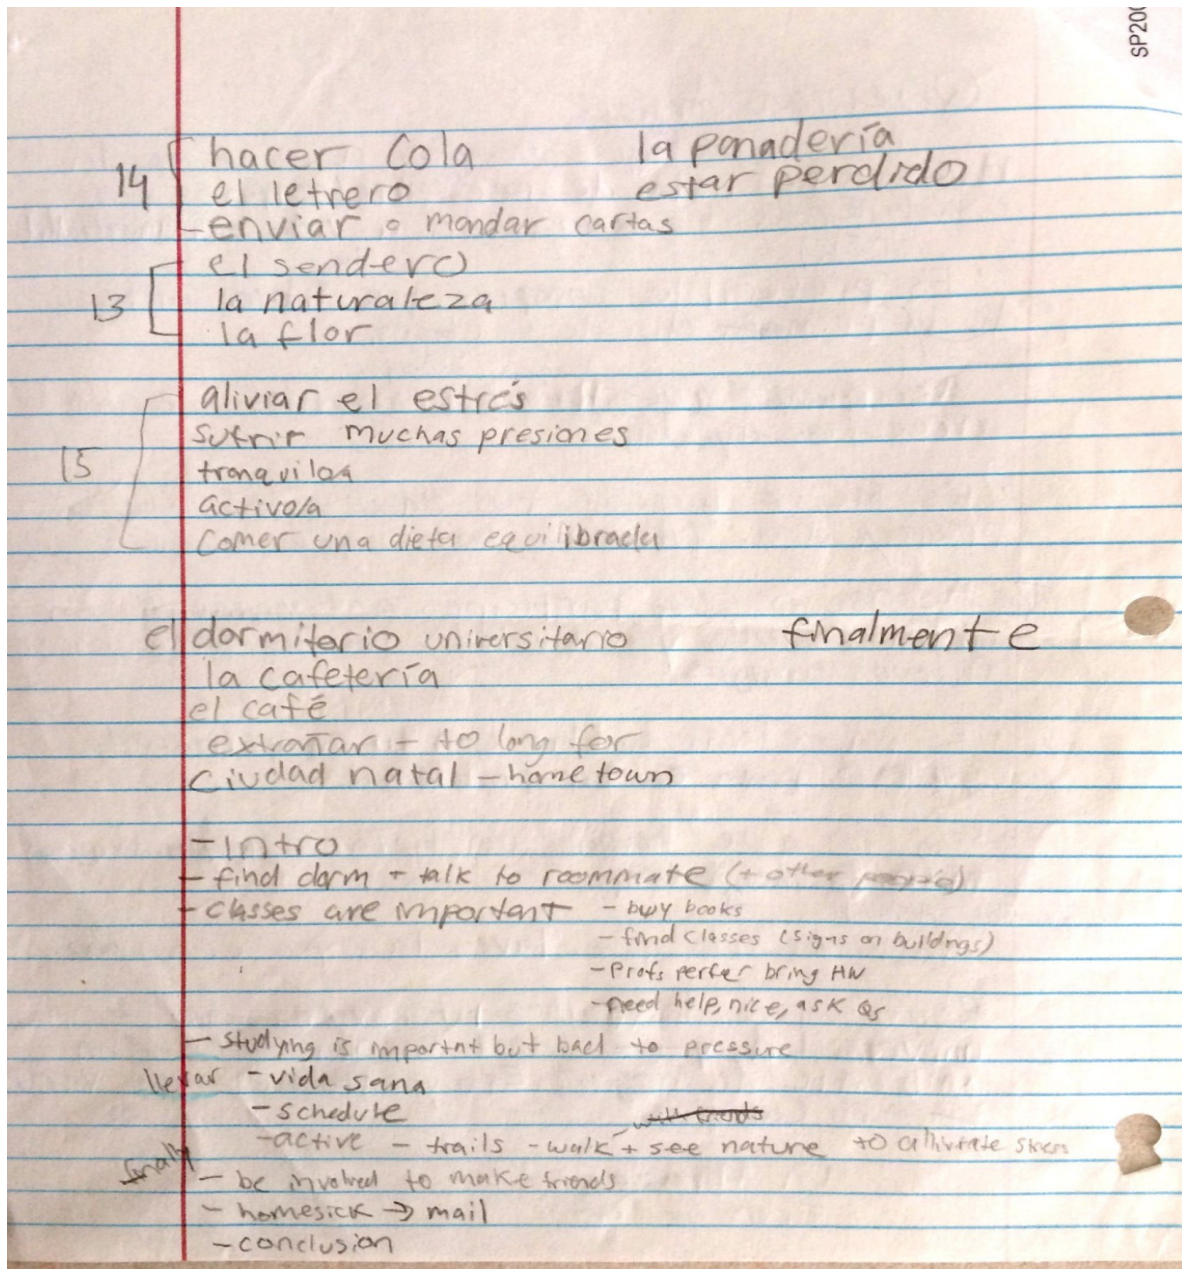 SP200
hacer Cola la panadería
14 el letrero estar perdido
-enviar o mandar cartas
el sendero
13 la naturaleza
la flor
aliviar el estrés
sufrir muchas presiones
15 tranquiloa
activo/a
comer una dieta equilibrada
el dormitorio universitario finalmente
la cafetería
el café
extrañar - to long for
Ciudad natal - home town
- Intro
- find dorm + talk to roommate (+ other people)
- classes are important - buy books
- find classes (signs on buildings)
- Profs perfer bring HW
- need help, nice, ask Qs
- studying is importnt but bad to pressure
llevar - vida sana
- schedule
with friends
- active - trails - walk + see nature to
finally - be involved to make friends
- homesick → mail
- conclusion